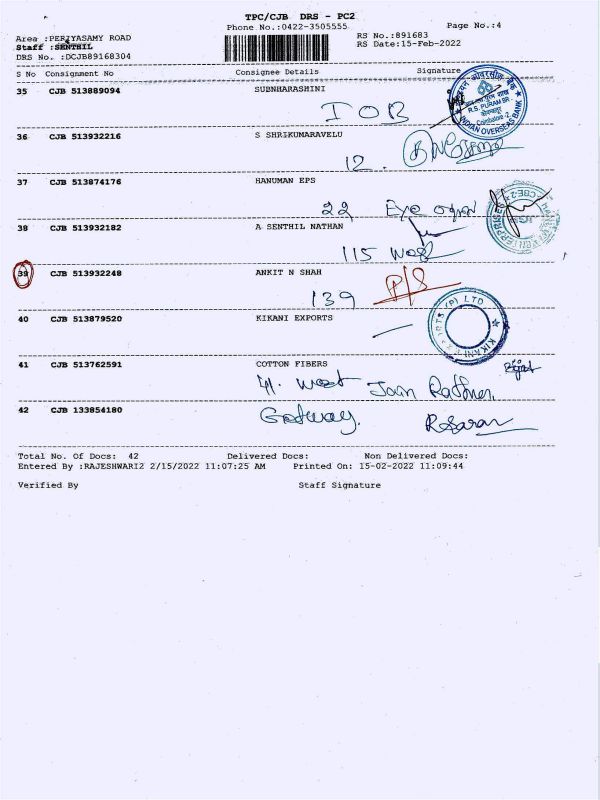 TPC/CJB DRS - PC2
Phone No.:0422-3505555
Page No.:4
Area :PERIYASAMY ROAD
RS No.:891683
Staff :SENTHIL
RS Date:15-Feb-2022
DRS No. :DCJB89168304
S No Consignment No Consignee Details Signature
35 CJB 513889094 SUBNHARASHINI
IOB
R.S. PURAM BR
Coimbatore-2
INDIAN OVERSEAS BANK
36 CJB 513932216 S SHRIKUMARAVELU
12.
37 CJB 513874176 HANUMAN EPS
22 Eye
38 CJB 513932182 A SENTHIL NATHAN
115 West
39 CJB 513932248 ANKIT N SHAH
139 P/S
40 CJB 513879520 KIKANI EXPORTS
KIKANI (P) LTD
41 CJB 513762591 COTTON FIBERS
West Jain
42 CJB 133854180
R Saran
Total No. Of Docs: 42 Delivered Docs: Non Delivered Docs:
Entered By :RAJESHWARI2 2/15/2022 11:07:25 AM Printed On: 15-02-2022 11:09:44
Verified By Staff Signature